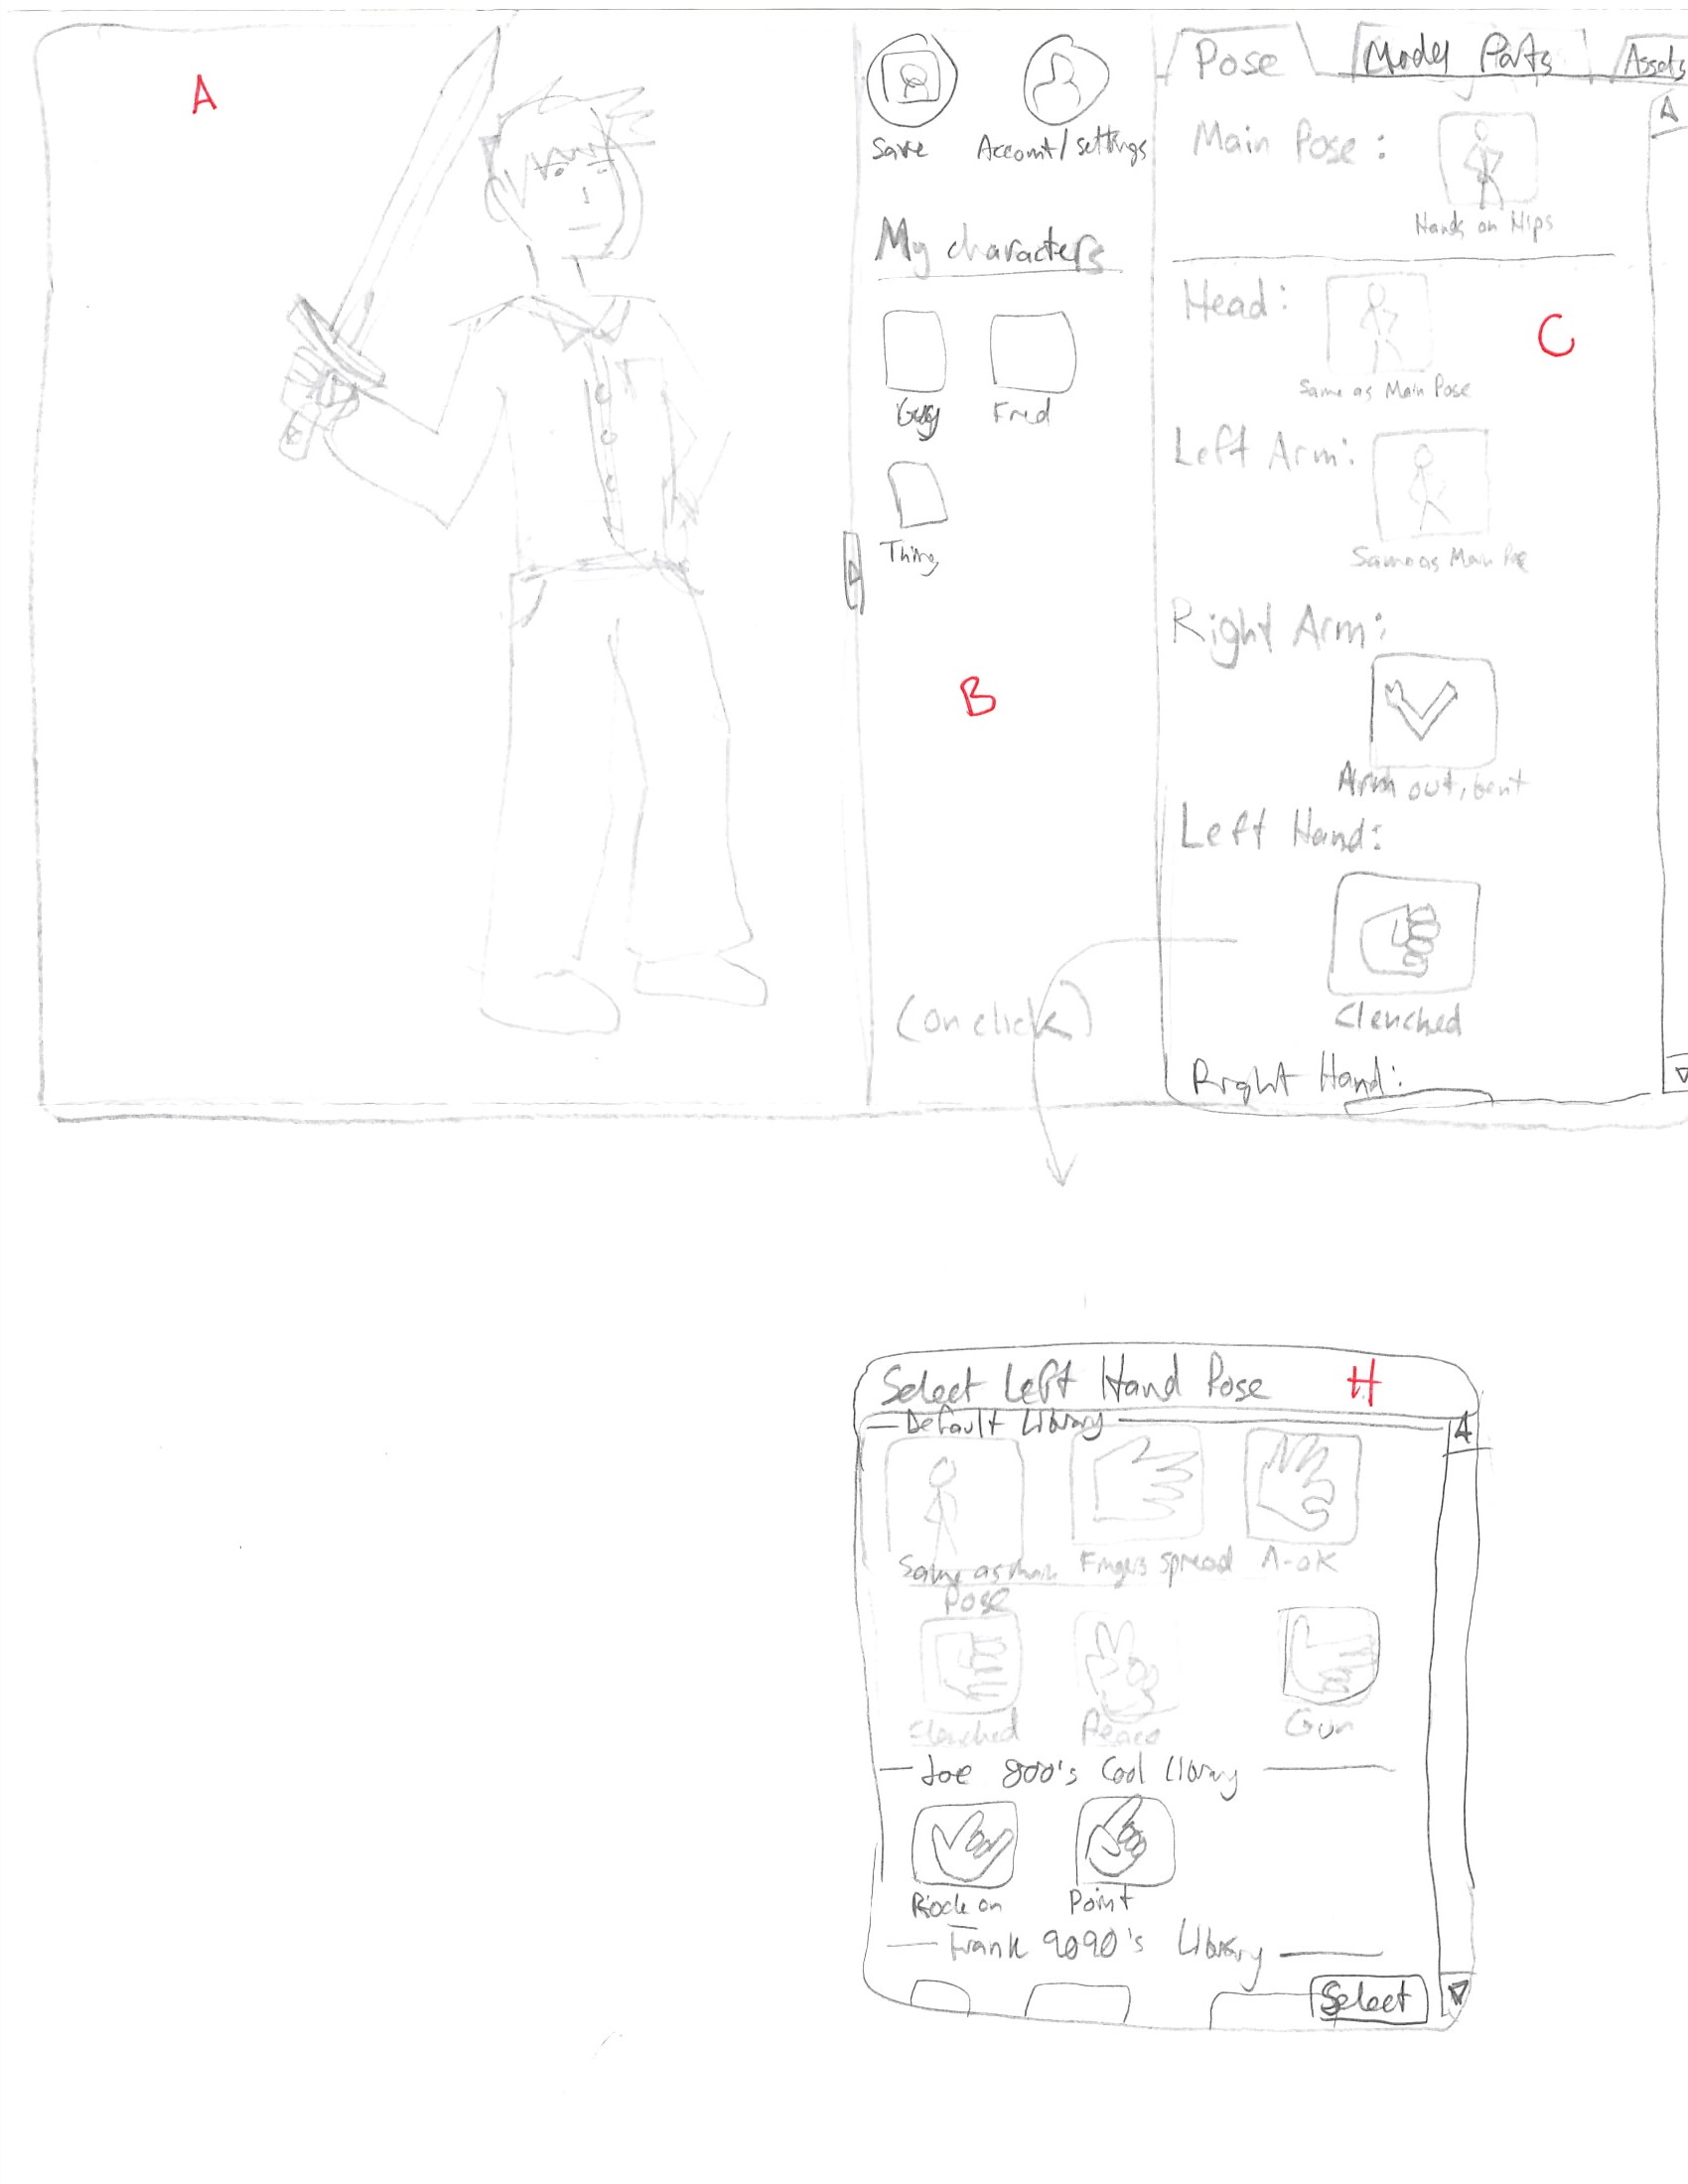 A
Save
Account/settings
My characters
Guy
Fred
Thing
B
(on click)
Pose
Model Parts
Assets
Main Pose:
Hands on Hips
Head:
C
Same as Main Pose
Left Arm:
Same as Main Pose
Right Arm:
Arm out, bent
Left Hand:
Clenched
Right Hand:
Select Left Hand Pose
H
Default Library
Same as main Pose
Fingers spread
A-ok
Clenched
Peace
Gun
Joe 800's Cool Library
Rock on
Point
Frank 9090's Library
Select